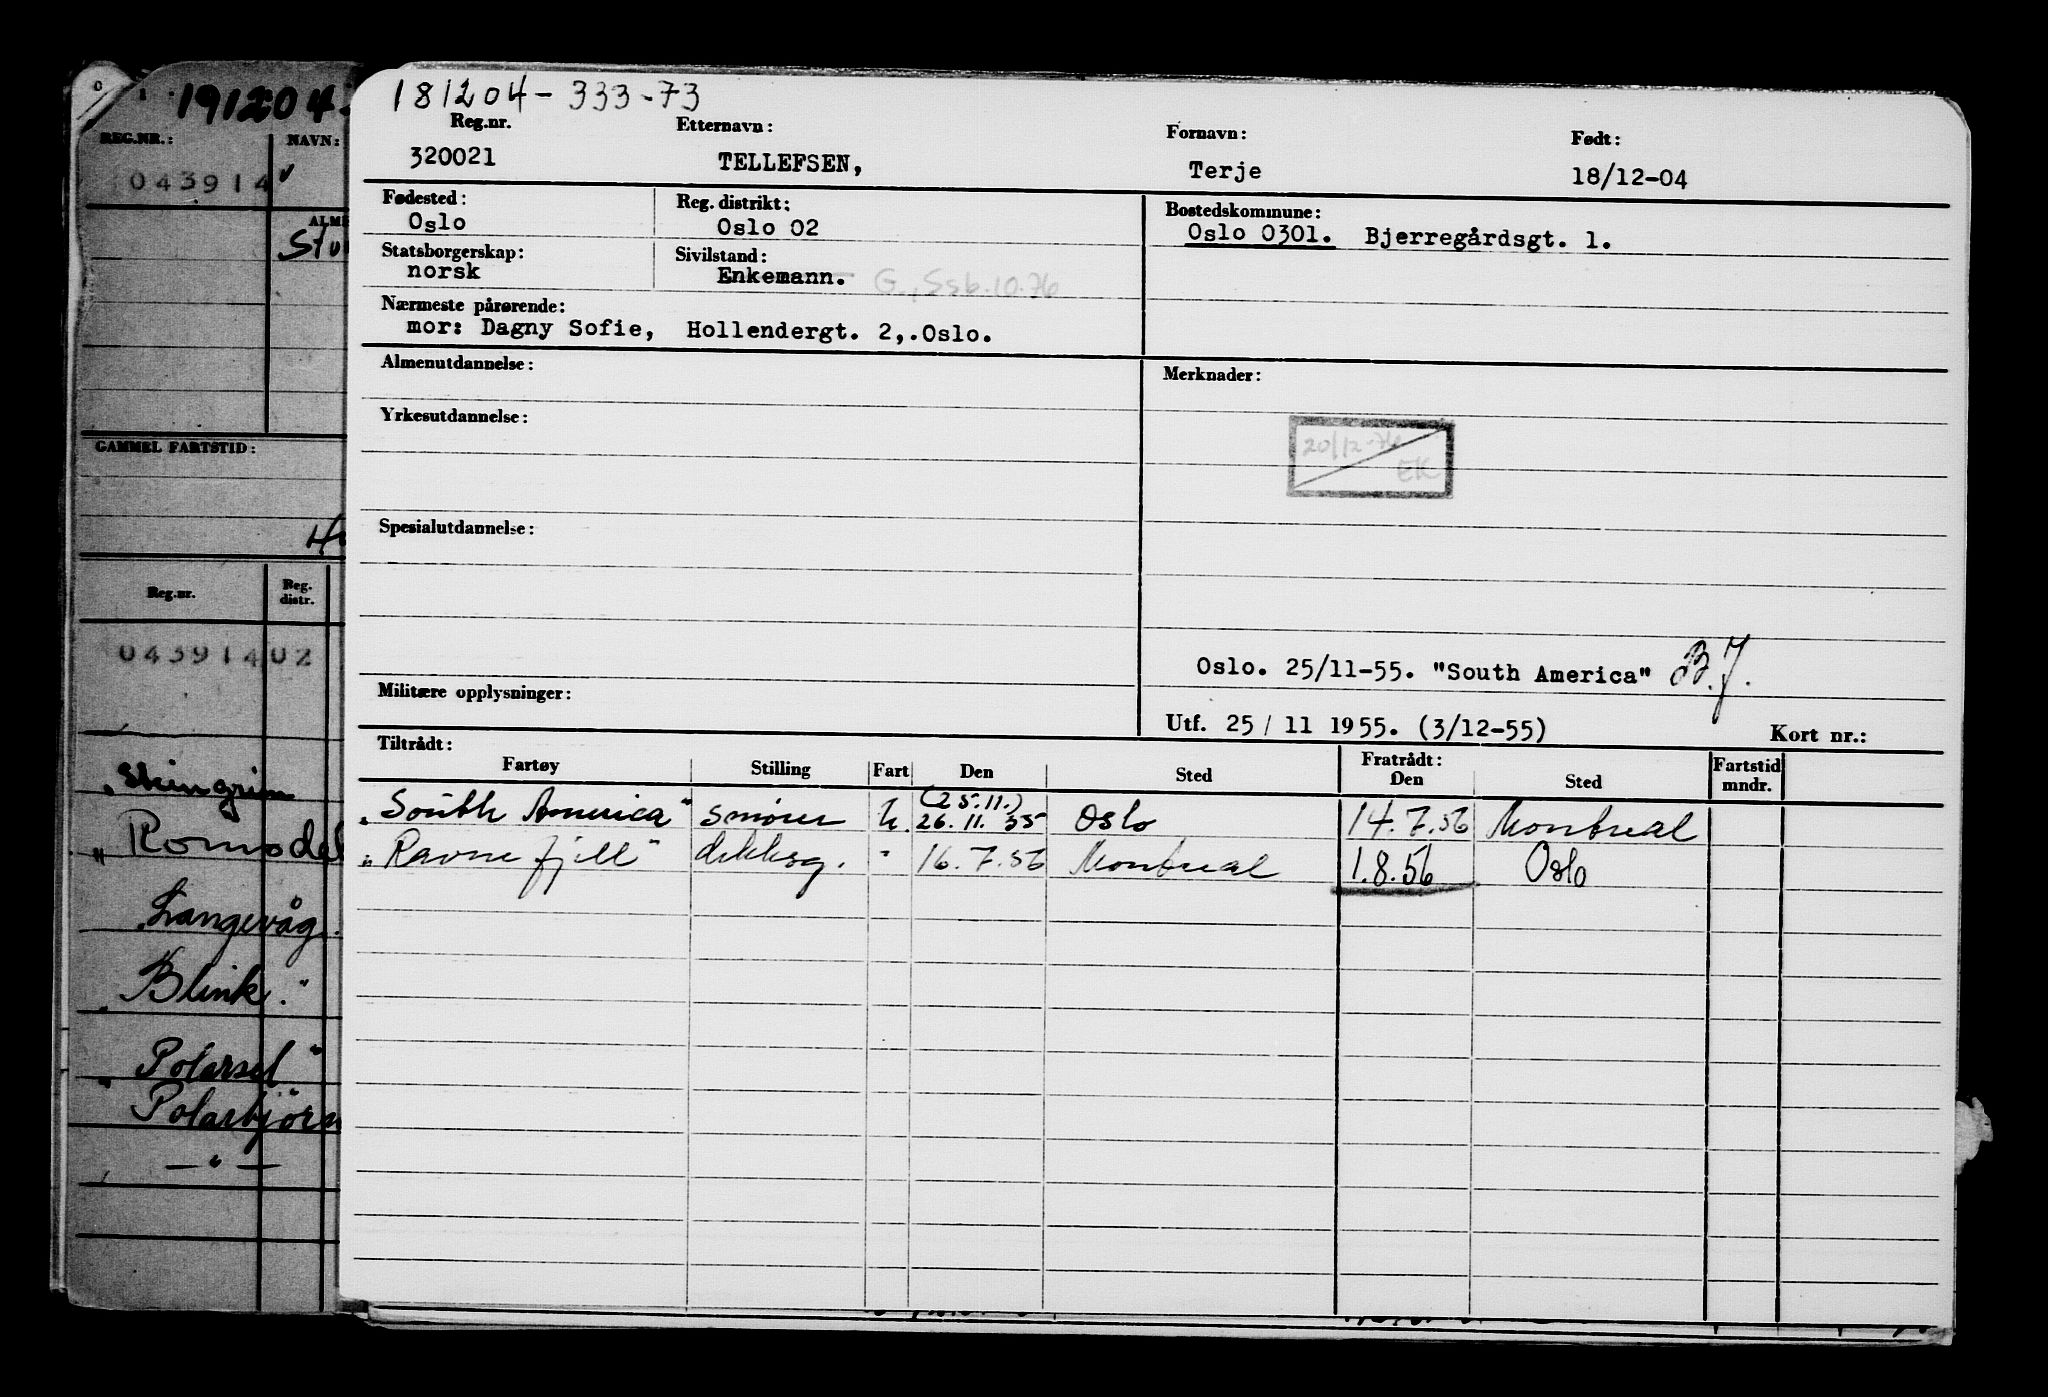 191204
REG.NR.: NAVN:
043914
GAMMEL FARTSTID:
Reg.nr. Reg. distr.
04391402
Romsdal
Langevåg
"Blink."
"Polarsel"
"Polarbjørn
— " —
181204-333-73
Reg.nr. Etternavn: Fornavn: Født:
320021 TELLEFSEN, Terje 18/12-04
Fødested: Reg. distrikt: Bostedskommune:
Oslo Oslo 02 Oslo 0301. Bjerregårdsgt. 1.
Statsborgerskap: Sivilstand:
norsk Enkemann. G., Ssb. 10.76
Nærmeste pårørende:
mor: Dagny Sofie, Hollendergt. 2,.Oslo.
Almenutdannelse: Merknader:
Yrkesutdannelse:
20/12-76
EK
Spesialutdannelse:
Oslo. 25/11-55. "South America" B.J.
Militære opplysninger:
Utf. 25/11 1955. (3/12-55) Kort nr.:
Tiltrådt: Fratrådt: Fartstid
Fartøy Stilling Fart Den Sted Den Sted mndr.
(25.11.)
"South America" smører u. 26.11.55 Oslo 14.7.56 Montreal
"Ravnefjell" dekksg. " 16.7.56 Montreal 1.8.56 Oslo